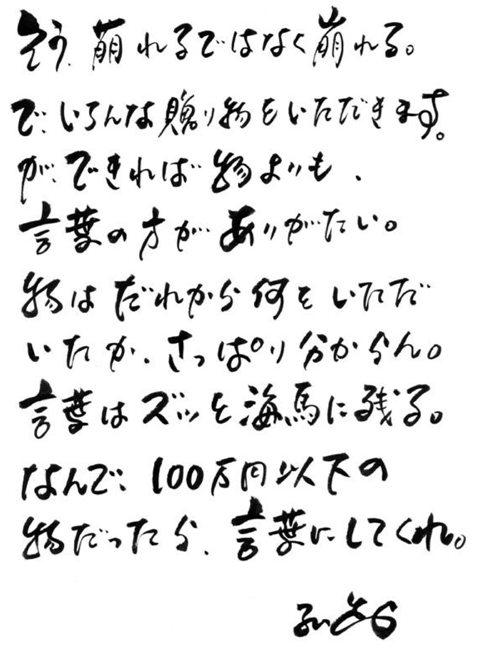 そう、崩れるではなく崩れる。
で、いろんな贈り物をいただきます。
が、できれば物よりも、
言葉の方がありがたい。
物はだれから何をいただ
いたか、さっぱり分からん。
言葉はズッと海馬に残る。
なんで、100万円以下の
物だったら、言葉にしてくれ。